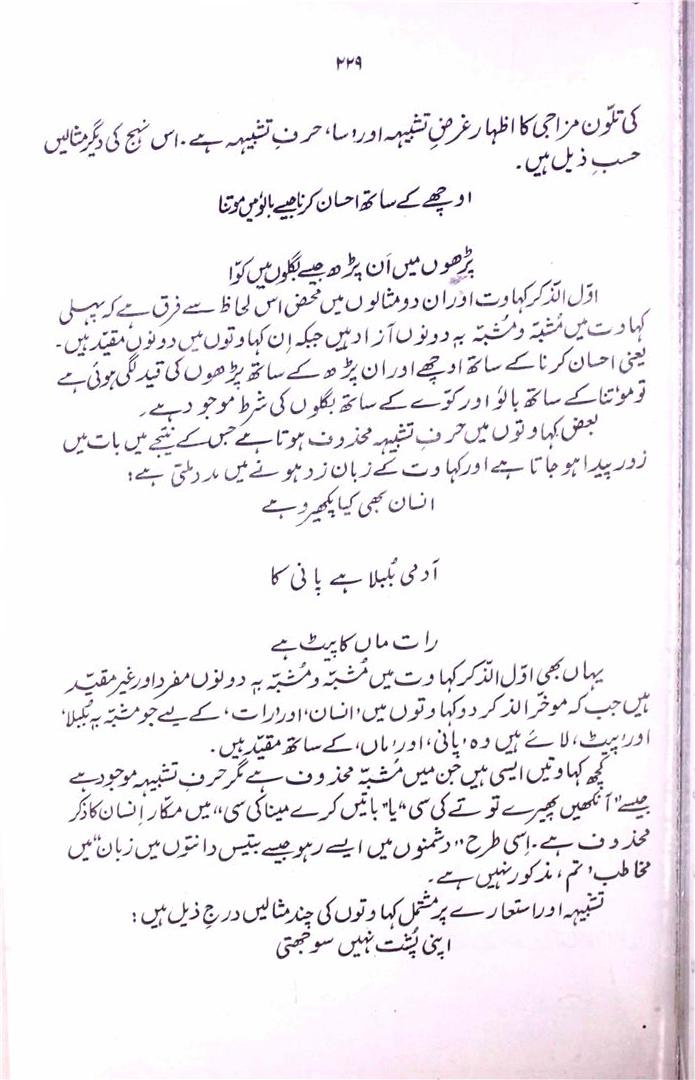 ۲۲۹
کی تلوّن مزاجی کا اظہار غرضِ تشبیہہ اور ’سا‘، حرفِ تشبیہہ ہے۔ اس نہج کی دیگر مثالیں
حسبِ ذیل ہیں۔
اوچھے کے ساتھ احسان کرنا جیسے بالوٗ میں موٗتنا
پڑھوں میں اَن پڑھ جیسے بگلوں میں کوّا
اوّل الذّکر کہاوت اور ان دو مثالوں میں محض اس لحاظ سے فرق ہے کہ پہلی
کہاوت میں مُشبّہ و مُشبّہ بہ دونوں آزاد ہیں جبکہ اِن کہاوتوں میں دونوں مقیّد ہیں۔
یعنی احسان کرنا کے ساتھ اوچھے اور ان پڑھ کے ساتھ پڑھوں کی قید لگی ہوئی ہے
تو موٗتنا کے ساتھ بالوٗ اور کوّے کے ساتھ بگلوں کی شرط موجود ہے۔
بعض کہاوتوں میں حرفِ تشبیہہ محذوف ہوتا ہے جس کے نتیجے میں بات میں
زور پیدا ہو جاتا ہے اور کہاوت کے زبان زد ہونے میں مدد ملتی ہے:
انسان بھی کیا پکھیرو ہے
آدمی بُلبلا ہے پانی کا
رات ماں کا پیٹ ہے
یہاں بھی اوّل الذّکر کہاوت میں مُشبّہ و مُشبّہ بہ دونوں مفرد اور غیر مقیّد
ہیں جب کہ موخّر الذکر دو کہاوتوں میں ’انسان‘ اور ’رات‘، کے لیے جو مشبّہ بہ ’بُلبلا‘
اور ’پیٹ‘، لائے ہیں وہ ’پانی‘، اور ’ماں‘، کے ساتھ مقیّد ہیں۔
کچھ کہاوتیں ایسی ہیں جن میں مُشبّہ محذوف ہے مگر حرفِ تشبیہہ موجود ہے
جیسے ”آنکھیں پھیرے توتے کی سی“ یا ”باتیں کرے مینا کی سی“، میں مکّار اِنسان کا ذکر
محذوف ہے۔ اِسی طرح ”دشمنوں میں ایسے رہو جیسے بتیس دانتوں میں زبان“ میں
مخاطب ’تم‘، مذکور نہیں ہے۔
تشبیہہ اور استعارے پر مشتمل کہاوتوں کی چند مثالیں درجِ ذیل ہیں:
اپنی پُشت نہیں سوجھتی